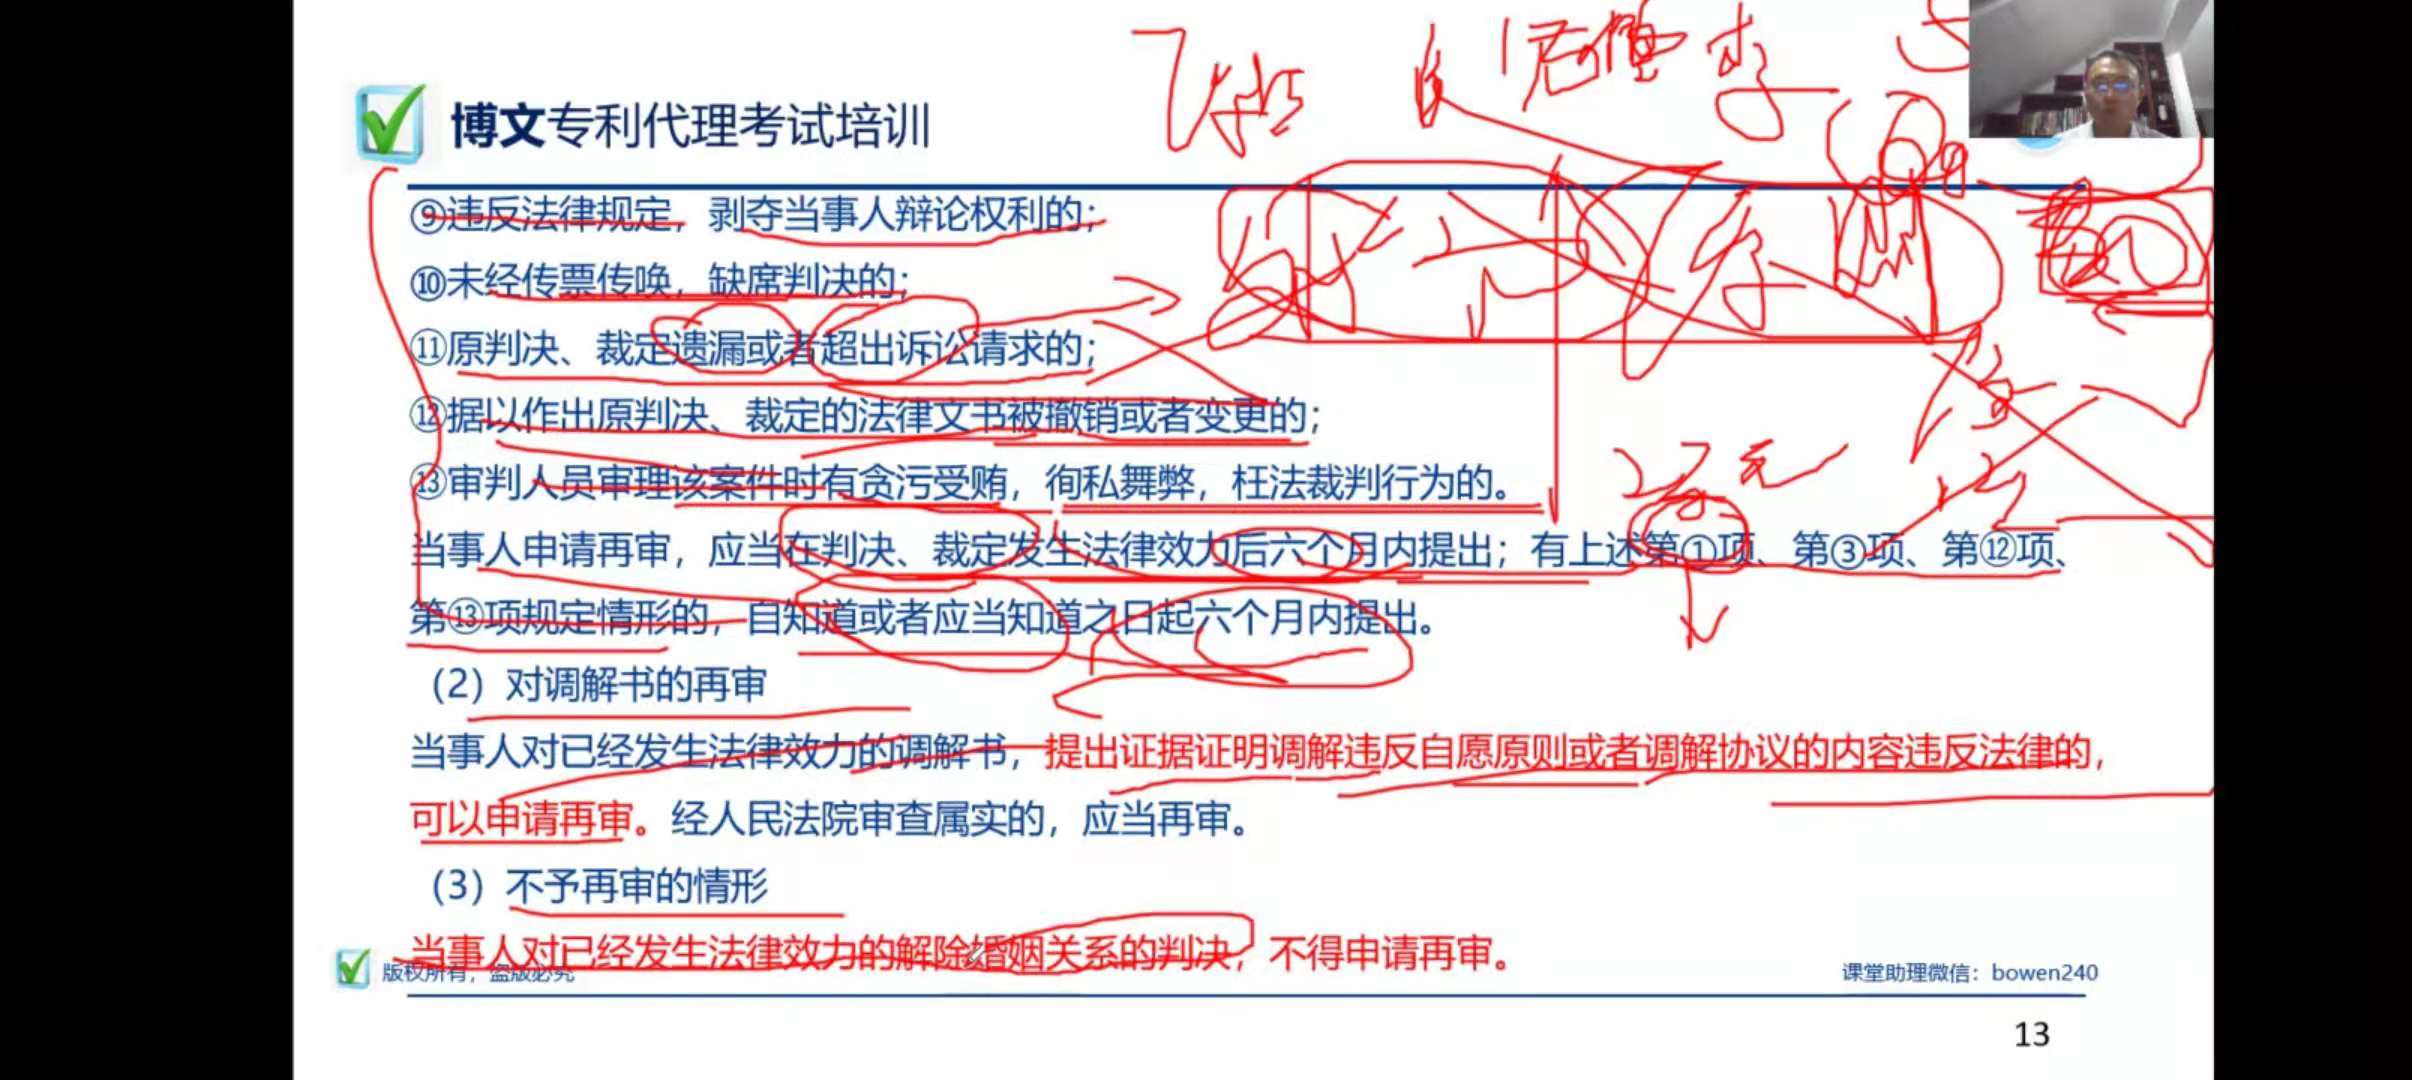 博文专利代理考试培训
⑨违反法律规定，剥夺当事人辩论权利的；
⑩未经传票传唤，缺席判决的；
⑪原判决、裁定遗漏或者超出诉讼请求的；
⑫据以作出原判决、裁定的法律文书被撤销或者变更的；
⑬审判人员审理该案件时有贪污受贿，徇私舞弊，枉法裁判行为的。
当事人申请再审，应当在判决、裁定发生法律效力后六个月内提出；有上述第①项、第③项、第⑫项、
第⑬项规定情形的，自知道或者应当知道之日起六个月内提出。
（2）对调解书的再审
当事人对已经发生法律效力的调解书，提出证据证明调解违反自愿原则或者调解协议的内容违反法律的，
可以申请再审。经人民法院审查属实的，应当再审。
（3）不予再审的情形
当事人对已经发生法律效力的解除婚姻关系的判决，不得申请再审。
版权所有，盗版必究
课堂助理微信：bowen240
13